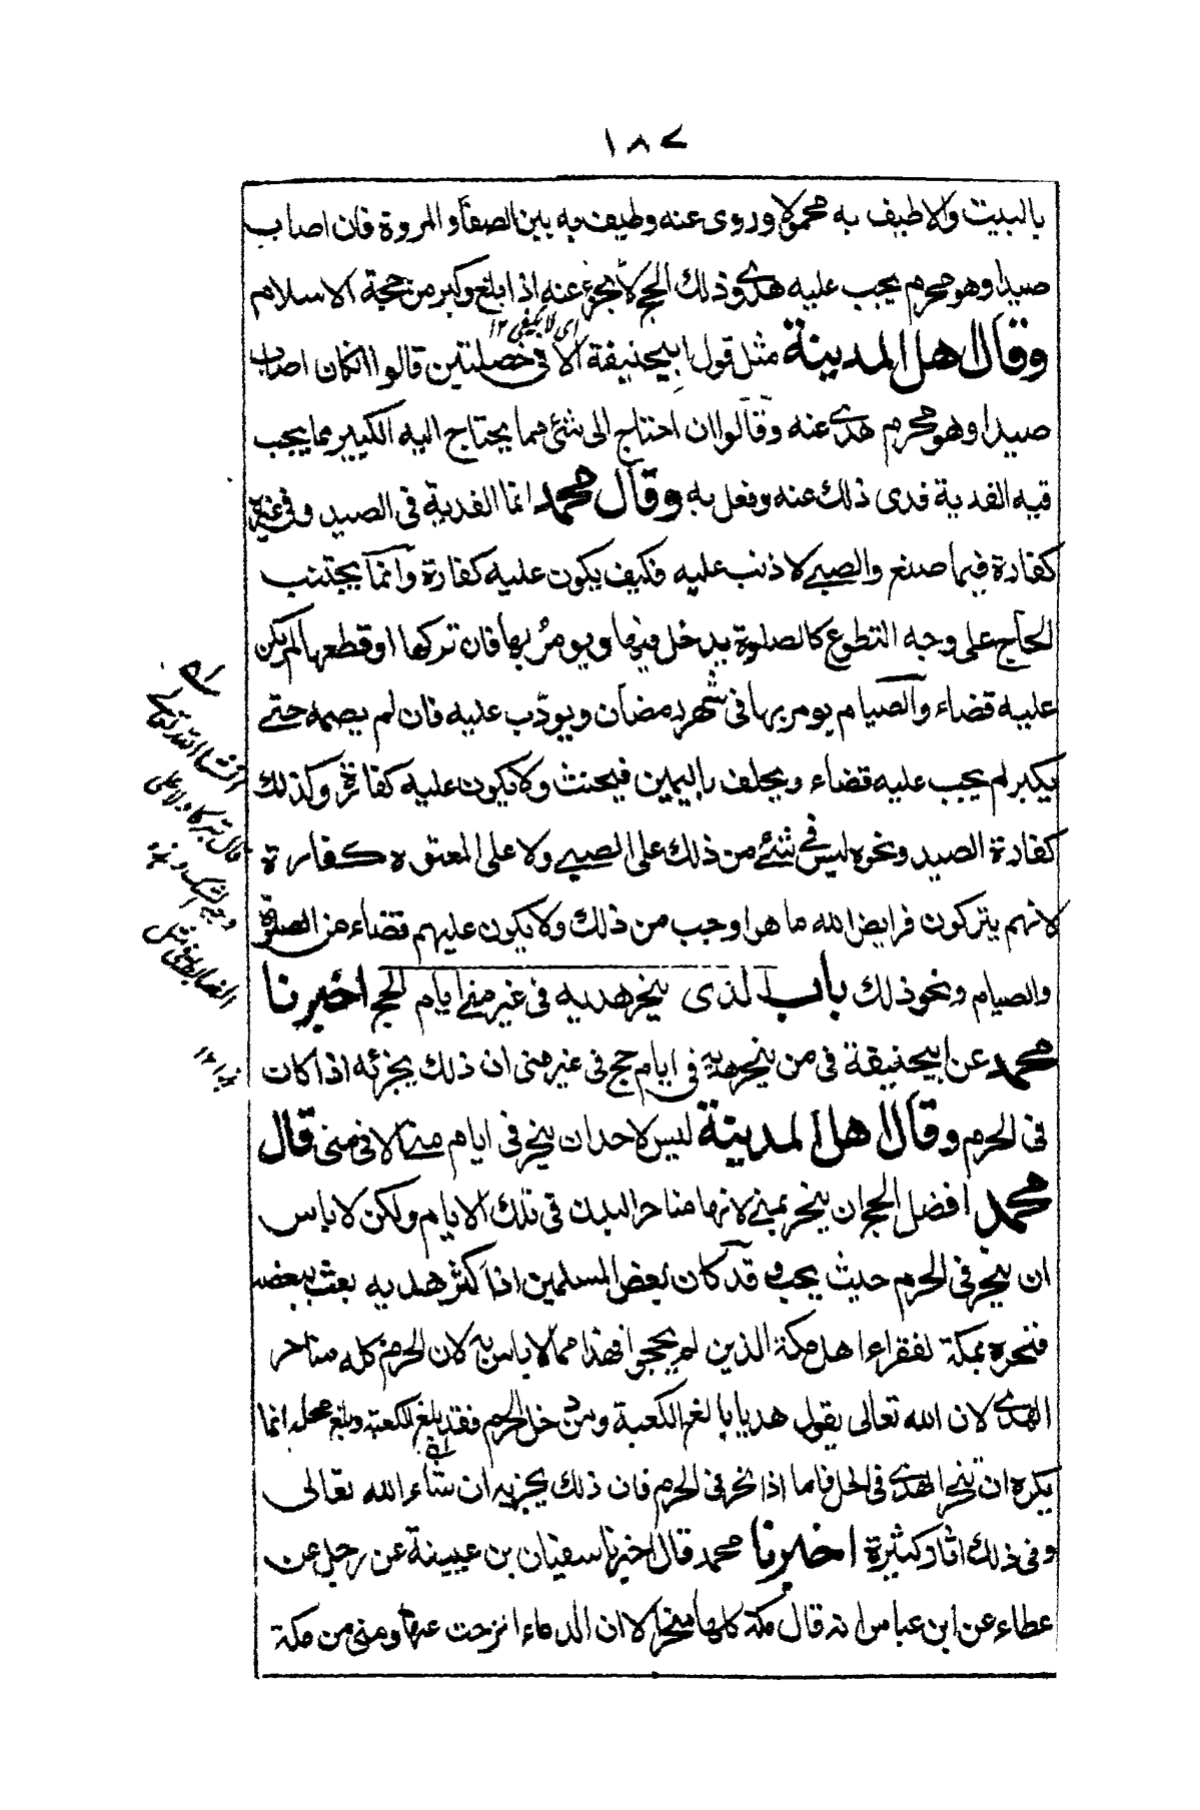 ١٨٧
بالبيت والاطيف به محمولا وروى عنه وطيف به بين الصفا والمروة فان اصاب
صيدا وهو محرم يجب عليه هدى وذلك الحج لا يجزئ عنه اذا بلغ وكبر من حجة الاسلام
اى لا يكفى ١٢
وقال اهل المدينة مثل قول ابيحنيفة الا فى خصلتين قالوا انكان اصاب
صيدا وهو محرم هدى عنه وقالوا ان احتاج الى شئ مما يحتاج اليه الكبير مما يجب
فيه الفدية فدى ذلك عنه وفعل به وقال محمد انما الفدية فى الصيد وفى غيره
كفارة فيما صنع والصبے لا ذنب عليه فكيف يكون عليه كفارة وانما يجتنب
الحاج على وجه التطوع كالصلوة يدخل فيها ويومر بها فان تركها او قطعها لم يكن
عليه قضاء والصيام يومر بها فى شهر رمضان ويودّب عليه فان لم يصمه حتے
يكبر لم يجب عليه قضاء ويحلف باليمين فيحنث ولا يكون عليه كفارة وكذلك
كفارة الصيد ونحوه ليس فى شئے من ذلك على الصبے ولا على المعتوه كفارة
لانهم يتركون فرايض الله ما هو اوجب من ذلك ولا يكون عليهم قضاء من الصلوة
والصيام ونحو ذلك باب الذى ينحر هديه فى غير منے ايام الحج اخبرنا
محمد عن ابيحنيفة فى من ينحر هديه فى ايام حج فى غير منى ان ذلك يجزئه اذا كان
فى الحرم وقال اهل المدينة ليس لاحد ان ينحر فى ايام منے الا فى منى قال
محمد افضل الحج ان ينحر بمنے لانها مناحر البدن فى تلك الايام ولكن لا باس
ان ينحر فى الحرم حيث يجب وقد كان بعض المسلمين اذا كثر هديه بعث ببعضه
فنحره بمكة لفقراء اهل مكة الذين لم يحجوا فهذا مما لا باس به لان الحرم كله مناحر
الهدى لان الله تعالى يقول هديا بالغ الكعبة ومن دخل الحرم فقد بلغ الكعبة وبلغ محله انما
يكره ان تنحر الهدى فى الحل فاما اذا نحر فى الحرم فان ذلك يجزيه ان شاء الله تعالى
وفى ذلك اثار كثيرة اخبرنا محمد قال اخبرنا سفيان بن عيينة عن رجل عن
عطاء عن ابن عباس انه قال مكة كلها منحر الا ان الدماء نزحت عنها ومنى من مكة
انشاء الله تعالے
قال تبركا ولا على
وجه الشك و